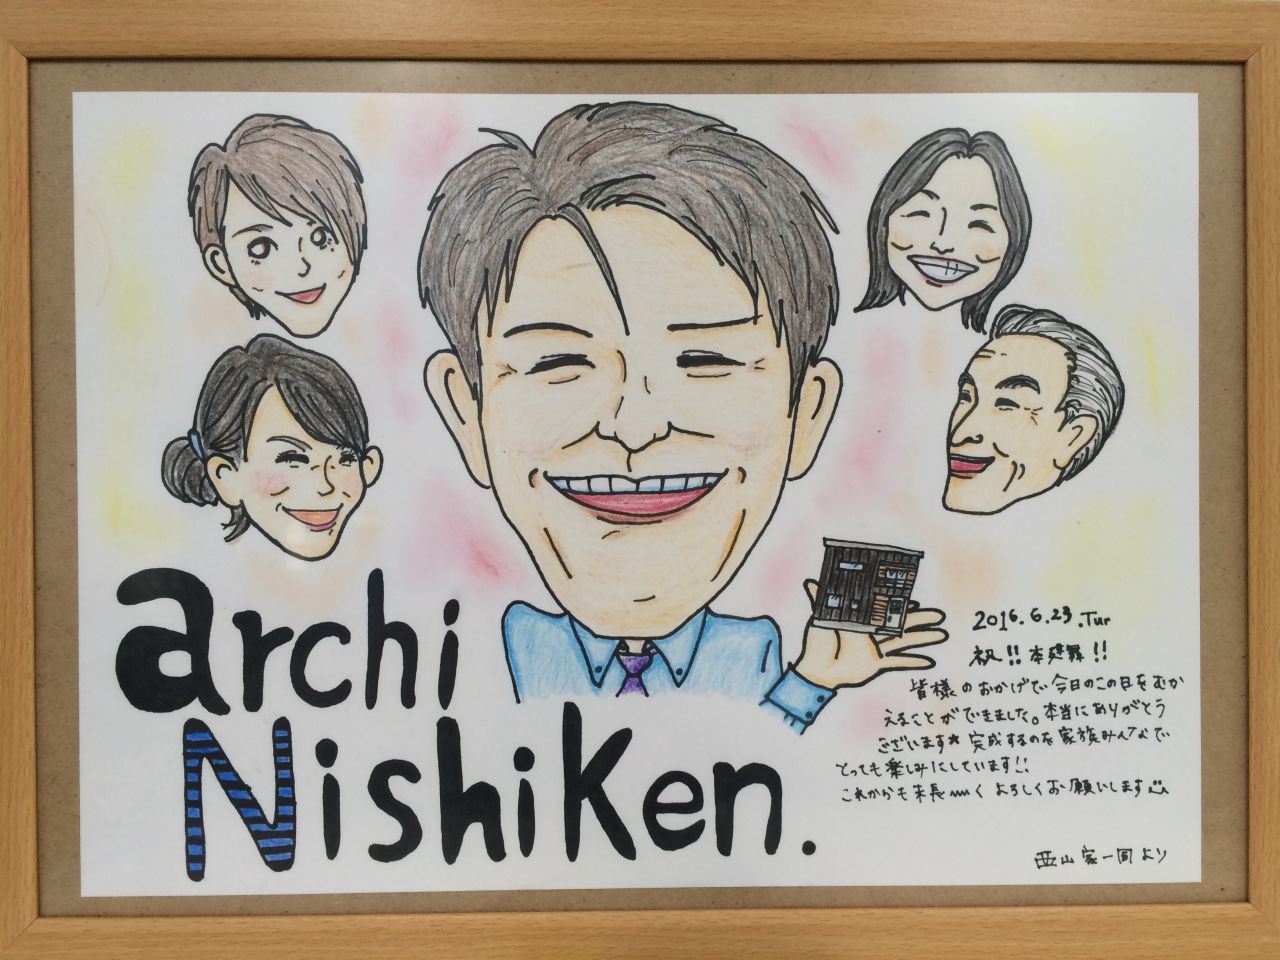 archi
NishiKen.
2016.6.23.Tur
祝!!本契約!!
皆様のおかげで今日のこの日をむか
えることができました。本当にありがとう
ございます☆完成するのを家族みんなで
とっても楽しみにしています!!
これからも末長〰く よろしくお願いします
西山家一同より